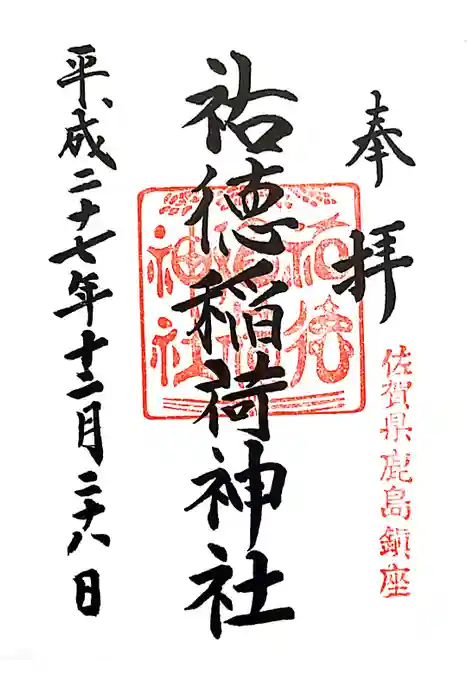 奉拝
佐賀県鹿島鎮座
祐徳稲荷神社
祐徳
稲荷
神社
平成二十七年十二月二十八日